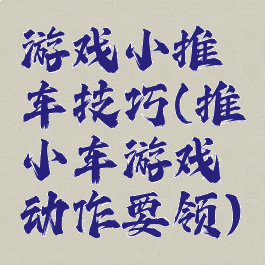 游戏小推
车技巧(推
小车游戏
动作要领)